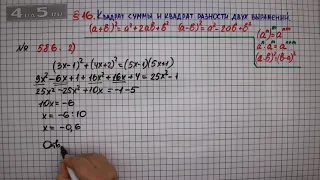 § 16. Квадрат суммы и квадрат разности двух выражений.
(a+b)² = a² + 2ab + b² (a-b)² = a² - 2ab + b²
№ 586. 2)
(3x-1)² + (4x+2)² = (5x-1)(5x+1)
9x² - 6x + 1 + 16x² + 16x + 4 = 25x² - 1
25x² - 25x² + 10x = -1 - 5
10x = -6
x = -6 : 10
x = -0,6